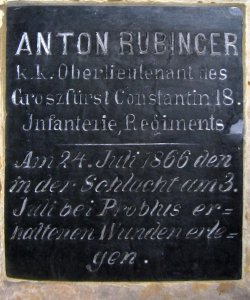 ANTON RUBINGER
k.k. Oberlieutenant des
Groszfürst Constantin 18.
Infanterie, Regiments
Am 24. Juli 1866 den
in der Schlacht am 3.
Juli bei Problus er-
haltenen Wunden erle-
gen.